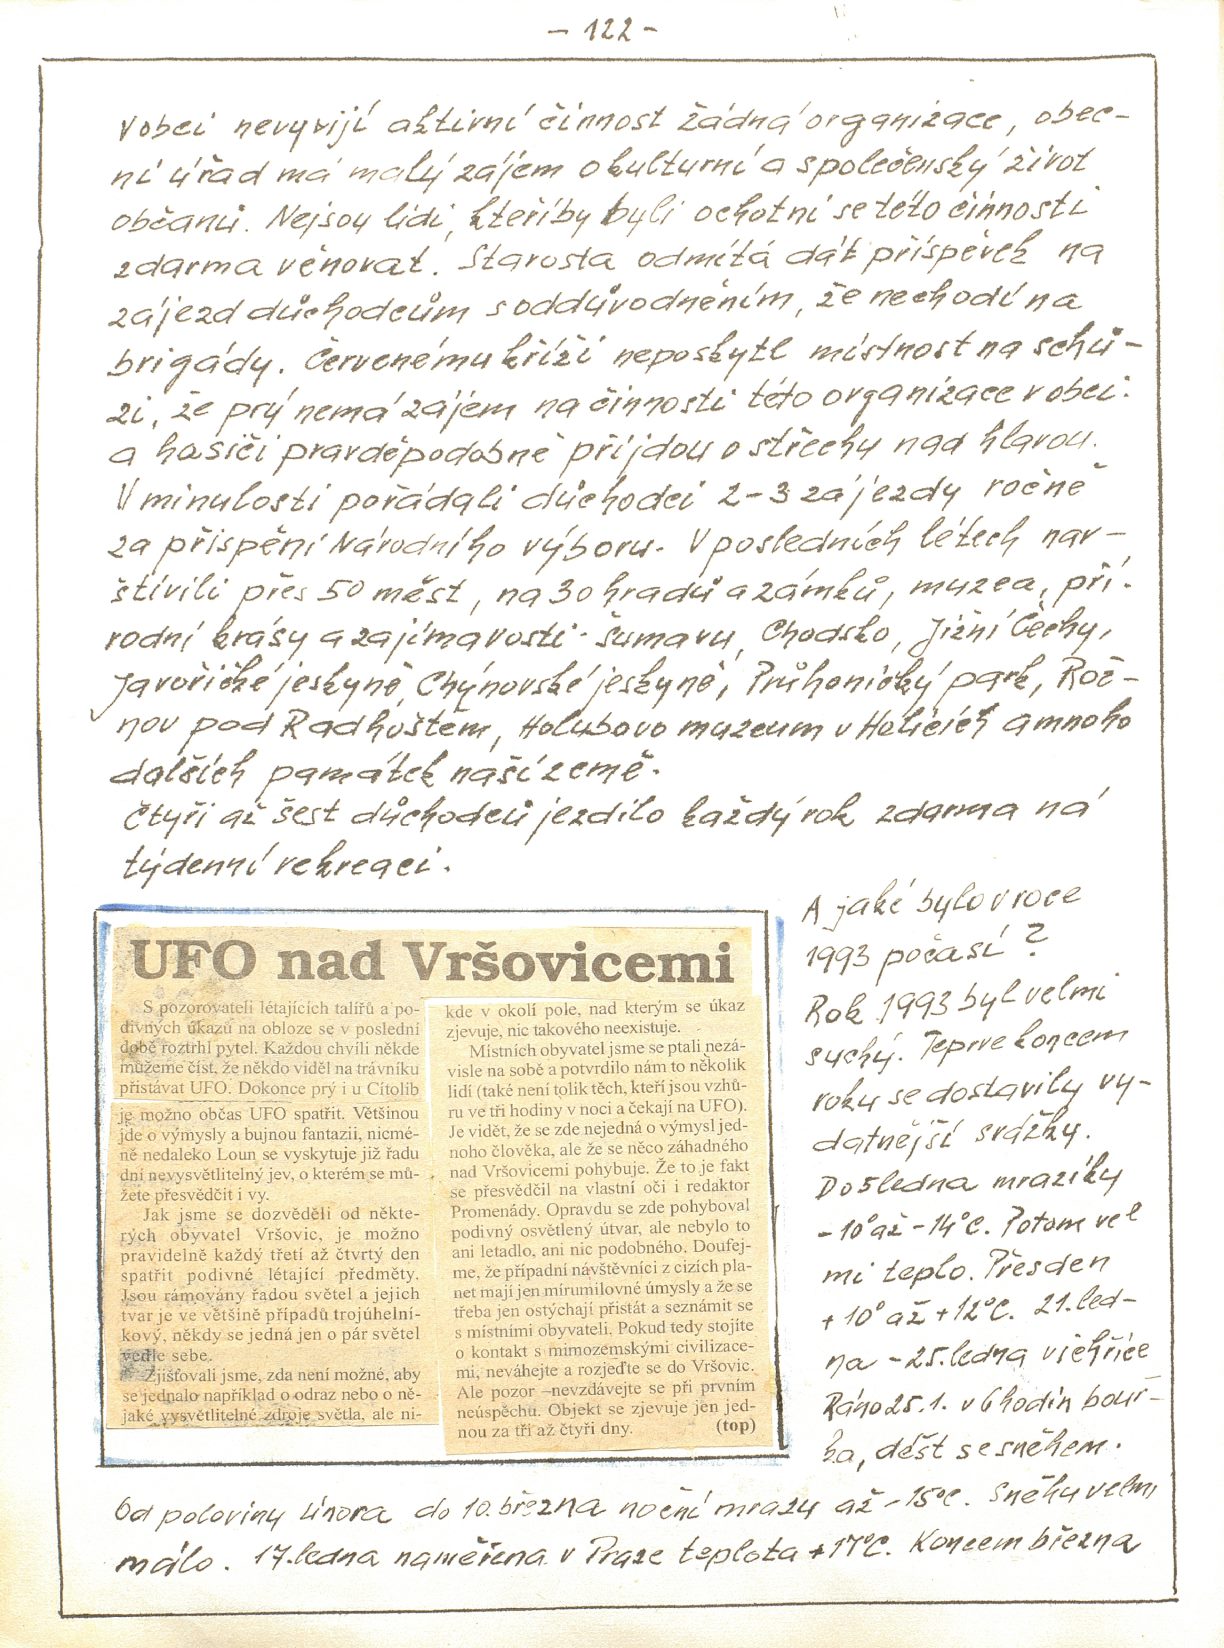 - 122 -
V obci nevyvijí aktivní činnost žádná organizace, obec-
ní úřad má malý zájem o kulturní a společenský život
občanů. Nejsou lidi, kteříby byli ochotni se této činnosti
zdarma věnovat. Starosta odmítá dát příspěvek na
zájezd důchodcům s oddůvodněním, že nechodí na
brigády. Červenému kříži neposkytl místnost na schů-
zi, že prý nemá zájem na činnosti této organizace v obci.
a hasiči pravděpodobně příjdou o střechu nad hlavou.
V minulosti pořádali důchodci 2-3 zájezdy ročně
za přispění Národního výboru. V posledních létech nav-
štívili přes 50 měst, na 30 hradů a zámků, muzea, pří-
rodní krásy a zajímavosti - Šumavu, Chodsko, Jižní Čechy,
Javoříčké jeskyně, Chýnovské jeskyně, Průhonický park, Rož-
nov pod Radhoštěm, Holubovo muzeum v Holicích a mnoho
dalších památek naší země.
Čtyři až šest důchodců jezdilo každý rok zdarma na
týdenní rekreaci.
UFO nad Vršovicemi
S pozorovateli létajících talířů a po-
divných úkazů na obloze se v poslední
době roztrhl pytel. Každou chvíli někde
můžeme číst, že někdo viděl na trávníku
přistávat UFO. Dokonce prý i u Cítolib
je možno občas UFO spatřit. Většinou
jde o výmysly a bujnou fantazii, nicmé-
ně nedaleko Loun se vyskytuje již řadu
dní nevysvětlitelný jev, o kterém se mů-
žete přesvědčit i vy.
Jak jsme se dozvěděli od někte-
rých obyvatel Vršovic, je možno
pravidelně každý třetí až čtvrtý den
spatřit podivné létající předměty.
Jsou rámovány řadou světel a jejich
tvar je ve většině případů trojúhelní-
kový, někdy se jedná jen o pár světel
vedle sebe.
Zjišťovali jsme, zda není možné, aby
se jednalo například o odraz nebo o ně-
jaké vysvětlitelné zdroje světla, ale ni-
kde v okolí pole, nad kterým se úkaz
zjevuje, nic takového neexistuje.
Místních obyvatel jsme se ptali nezá-
visle na sobě a potvrdilo nám to několik
lidí (také není tolik těch, kteří jsou vzhů-
ru ve tři hodiny v noci a čekají na UFO).
Je vidět, že se zde nejedná o výmysl jed-
noho člověka, ale že se něco záhadného
nad Vršovicemi pohybuje. Že to je fakt
se přesvědčil na vlastní oči i redaktor
Promenády. Opravdu se zde pohyboval
podivný osvětlený útvar, ale nebylo to
ani letadlo, ani nic podobného. Doufej-
me, že případní návštěvníci z cizích pla-
net mají jen mírumilovné úmysly a že se
třeba jen ostýchají přistát a seznámit se
s místními obyvateli. Pokud tedy stojíte
o kontakt s mimozemskými civilizace-
mi, neváhejte a rozjeďte se do Vršovic.
Ale pozor –nevzdávejte se při prvním
neúspěchu. Objekt se zjevuje jen jed-
nou za tři až čtyři dny. (top)
A jaké bylo v roce
1993 počasí?
Rok 1993 byl velmi
suchý. Teprve koncem
roku se dostavily vy-
datnější srážky.
Do 5 ledna mrazíky
-10° až -14°C. Potom vel
mi teplo. Přes den
+10° až +12°C. 21. led-
na - 25. ledna vichřice
Ráno 25.1. v 6 hodin bouř-
ka, déšt se sněhem.
Od poloviny února do 10. března noční mrazy až -15°C. Sněhu velmi
málo. 17. ledna naměřena v Praze teplota +17°C. Koncem března